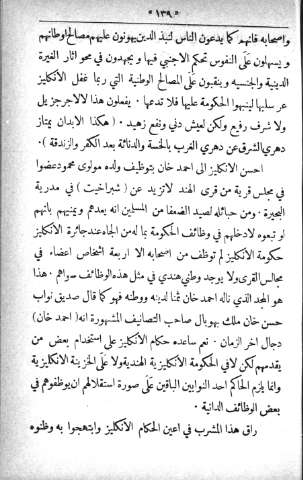 « ١٣٩ »
واصحابه فانهم كما يدعون الناس لنبذ الدين يهونون عليهم مصالح اوطانهم
ويسهلون على النفوس تحكم الاجنبي فيها ويجهدون في محو آثار الغيرة
الدينية والجنسية وينقبون على المصالح الوطنية التي ربما غفل الانكليز
عن سلبها لينبهوا الحكومة عليها فلا تدعها . يفعلون هذا لالاجر جزيل
ولا شرف رفيع ولكن لعيش دني ونفع زهيد . (هكذا الابدان يمتاز
دهري الشرق عن دهري الغرب بالخسة والدنائة بعد الكفر والزندقة).
احسن الانكليز الى احمد خان بتوظيف ولده مولوى محمود عضوا
في مجلس قرية من قرى الهند لاتزيد عن (شبراخيت) في مدرية
البحيرة . ومن حبائله لصيد الضعفا من المسلمين انه يعدهم ويمنيهم بانهم
لو تبعوه لادخلهم في وظائف الحكومة بما له من الجاه عند جائرة الانكليز
حكومة الانكليز لم توظف من اصحابه الا اربعة اشخاص اعضاء في
مجالس القرى ولا يوجد وطني هندي في مثل هذه الوظائف سواهم . هذا
هو المجد الذي ناله احمد خان ثمنا لدينه ووطنه فهو كما قال صديق نواب
حسن خان ملك بهوبال صاحب التصانيف المشهورة انه (احمد خان)
دجال اخر الزمان . نعم ساعده حكام الانكليز على استخدام بعض من
يقدمهم لكن لا في الحكومة الانكليزية الهندية ولا على الخزينة الانكليزية
وانما يلزم الحاكم احد النوابين الباقين على صورة استقلالهم ان يوظفوهم في
بعض الوظائف الدانية .
راق هذا المشرب في اعين الحكام الانكليز وابتهجوا به وظنوه